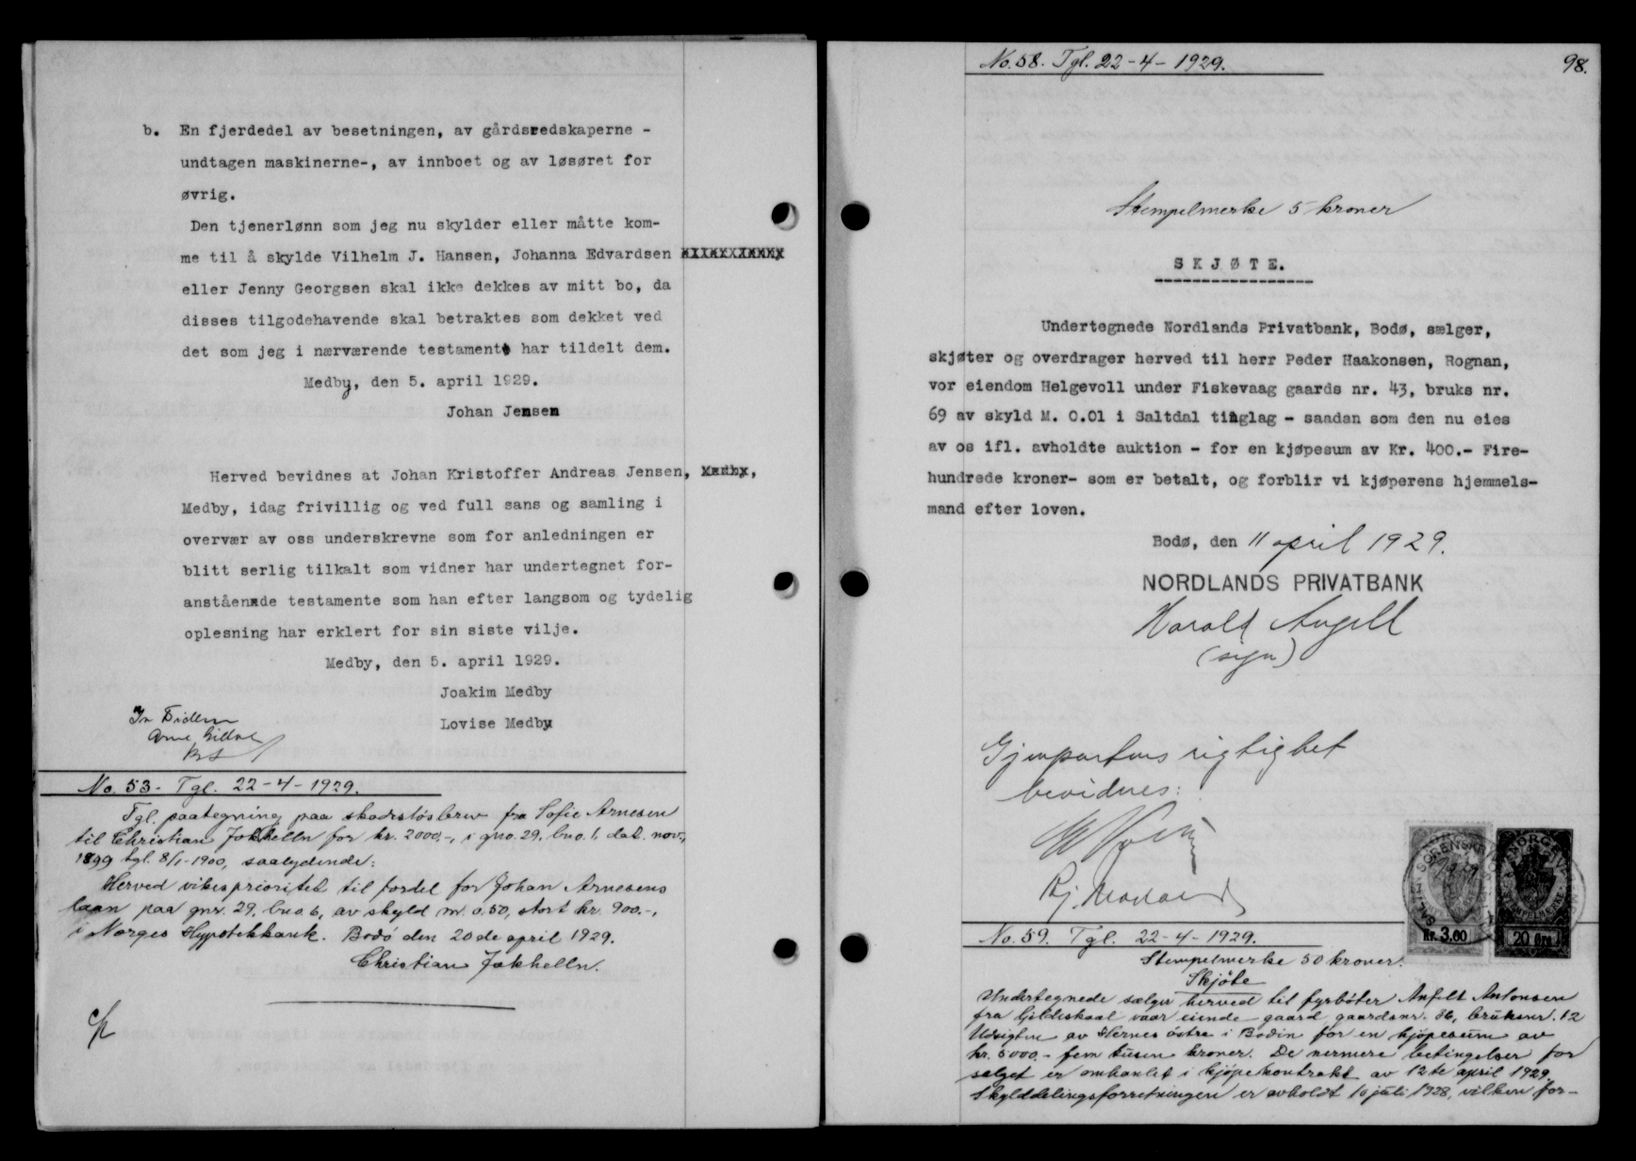 b. En fjerdedel av besetningen, av gårdsredskaperne -
undtagen maskinerne-, av innboet og av løsøret for
øvrig.
Den tjenerlønn som jeg nu skylder eller måtte kom-
me til å skylde Vilhelm J. Hansen, Johanna Edvardsen
eller Jenny Georgsen skal ikke dekkes av mitt bo, da
disses tilgodehavende skal betraktes som dekket ved
det som jeg i nærværende testamente har tildelt dem.
Medby, den 5. april 1929.
Johan Jensen
Herved bevidnes at Johan Kristoffer Andreas Jensen,
Medby, idag frivillig og ved full sans og samling i
overvær av oss underskrevne som for anledningen er
blitt serlig tilkalt som vidner har undertegnet for-
anstående testamente som han efter langsom og tydelig
oplesning har erklert for sin siste vilje.
Medby, den 5. april 1929.
Joakim Medby
Lovise Medby
No. 53. Tgl. 22-4-1929.
Tgl. paategning paa skadesløsbrev fra Sofie Arnesen
til Christian Jakhelln for kr. 2000,-, i gno. 29, bno. 1, dat. nov.,
1899 tgl. 8/1-1900, saalydende:
Herved vikes prioritet til fordel for Johan Arnesens
laan paa gnr. 29, bno. 6, av skyld m. 0.50, stort kr. 900.-,
i Norges Hypotekbank. Bodö den 20de april 1929.
Christian Jakhelln.
No. 58. Tgl. 22-4-1929.
98.
Stempelmerke 5 kroner
SKJØTE.
Undertegnede Nordlands Privatbank, Bodø, sælger,
skjøter og overdrager herved til herr Peder Haakonsen, Rognan,
vor eiendom Helgevoll under Fiskevaag gaards nr. 43, bruks nr.
69 av skyld M. 0.01 i Saltdal tinglag - saadan som den nu eies
av os ifl. avholdte auktion - for en kjøpesum av Kr. 400.- Fire-
hundrede kroner- som er betalt, og forblir vi kjøperens hjemmels-
mand efter loven.
Bodø, den 11 april 1929.
NORDLANDS PRIVATBANK
Harald Angell
(sign)
Gjenpartens rigtighet
bevidnes:
NORGE
Kr. 3.00
20 Øre
No. 59. Tgl. 22-4-1929.
Stempelmerke 50 kroner.
Skjöte
Undertegnede sælger herved til fyrböter Anfelt Antonsen
fra Gildeskaal vaar eiende gaard gaardsnr. 36, bruksnr. 12
Udsigten av Hernes östre i Bodin for en kjöpesum av
kr. 5000,- fem tusen kroner. De nermere betingelser for
salget er omhanlet i kjöpekontrakt av 12te april 1929.
Skylddelingsforretningen er avholdt 10 juli 1928, vilken for-